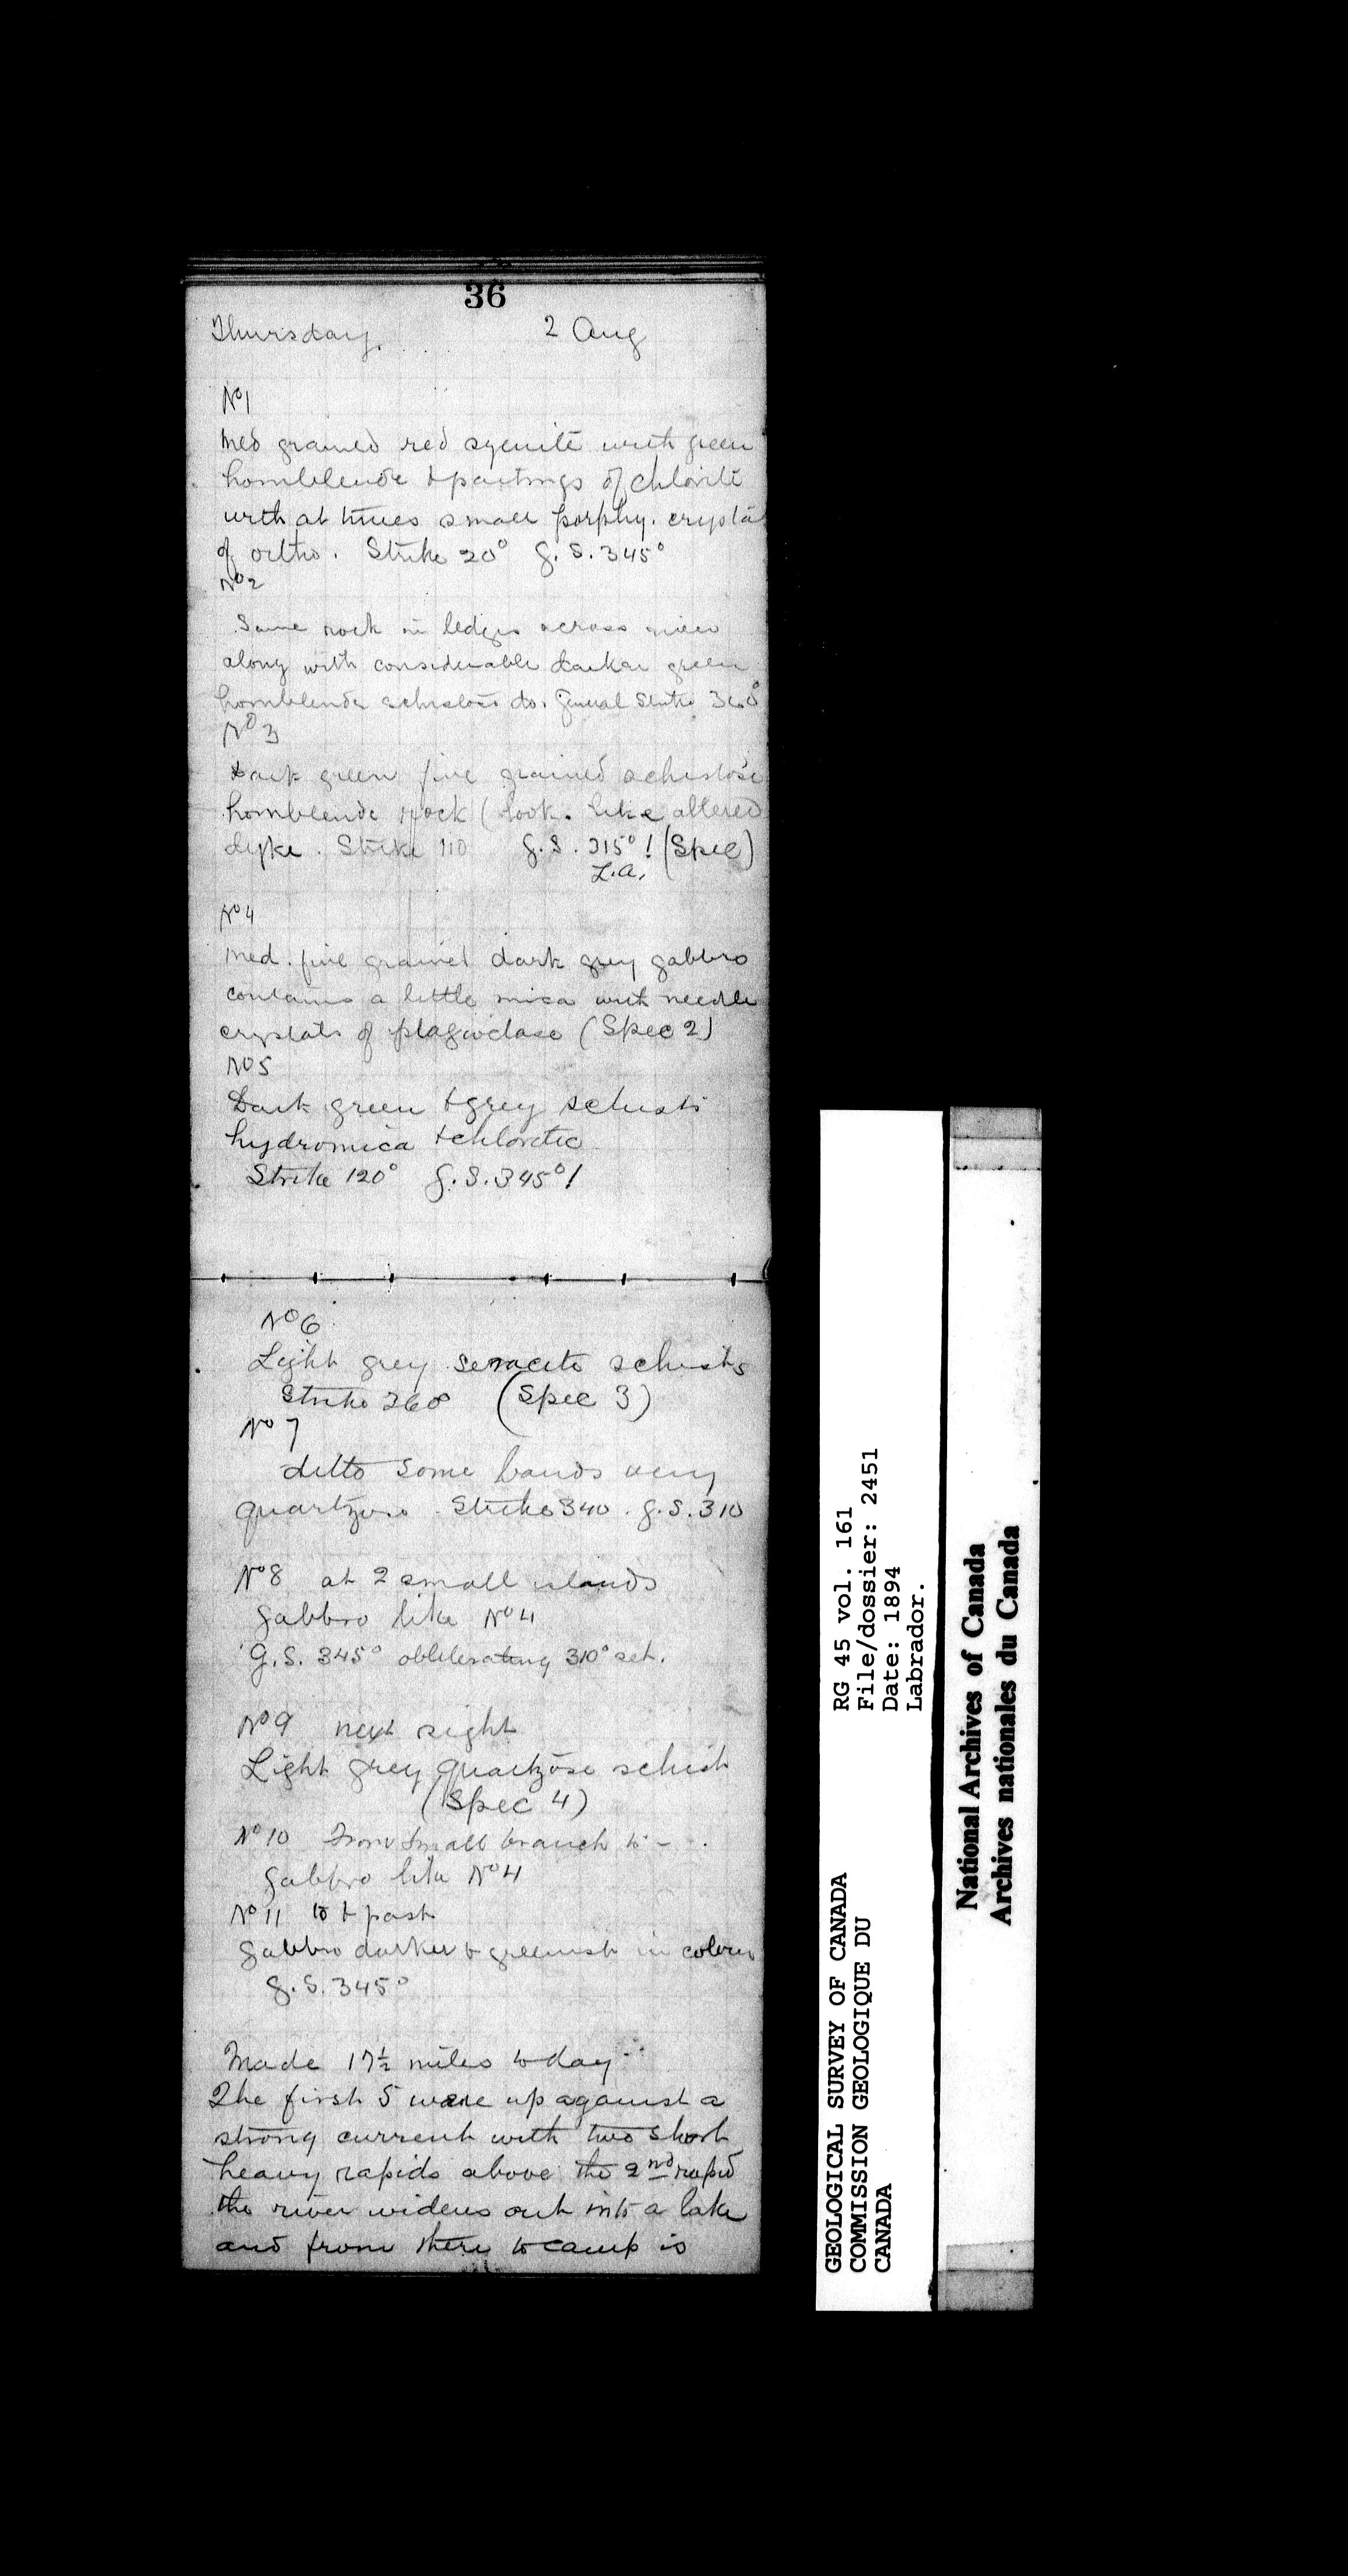 36
Thursday. 2 Aug
No 1
Med grained red syenite with green
hornblende & partings of chlorite
with at times small porphy. crystal
of ortho. Strike 20° g. S. 345°
No 2
Same rock in ledges across river
along with considerable darker green
hornblende schistose do. General Strike 360°
No 3
Dark green fine grained schistose
hornblende rock (look. like altered
dyke. Strike 110 g. S. 315°! (Spec)
L.a.
No 4
Med. fine grained dark grey gabbro
contains a little mica with needle
crystals of plagioclase (Spec 2)
No 5
Dark green & grey schists
hydromica & chloritic
Strike 120° g. S. 345°!
No 6
Light grey sericite schists
Strike 360 (Spec 3)
No 7
ditto some bands very
quartzose. Strike 340. g. S. 310
No 8 at 2 small islands
gabbro like No 4
G. S. 345° obliterating 310° set.
No 9 next sight
Light grey quartzose schist
(Spec 4)
No 10 From small branch to -
gabbro like No 4
No 11 to & past
gabbro darker & greenish in colour
g. S. 345°
Made 17½ miles today
The first 5 were up against a
strong current with two short
heavy rapids above the 2nd rapid
the river widens out into a lake
and from there to camp is
GEOLOGICAL SURVEY OF CANADA
COMMISSION GEOLOGIQUE DU
CANADA
RG 45 vol. 161
File/dossier: 2451
Date: 1894
Labrador.
National Archives of Canada
Archives nationales du Canada